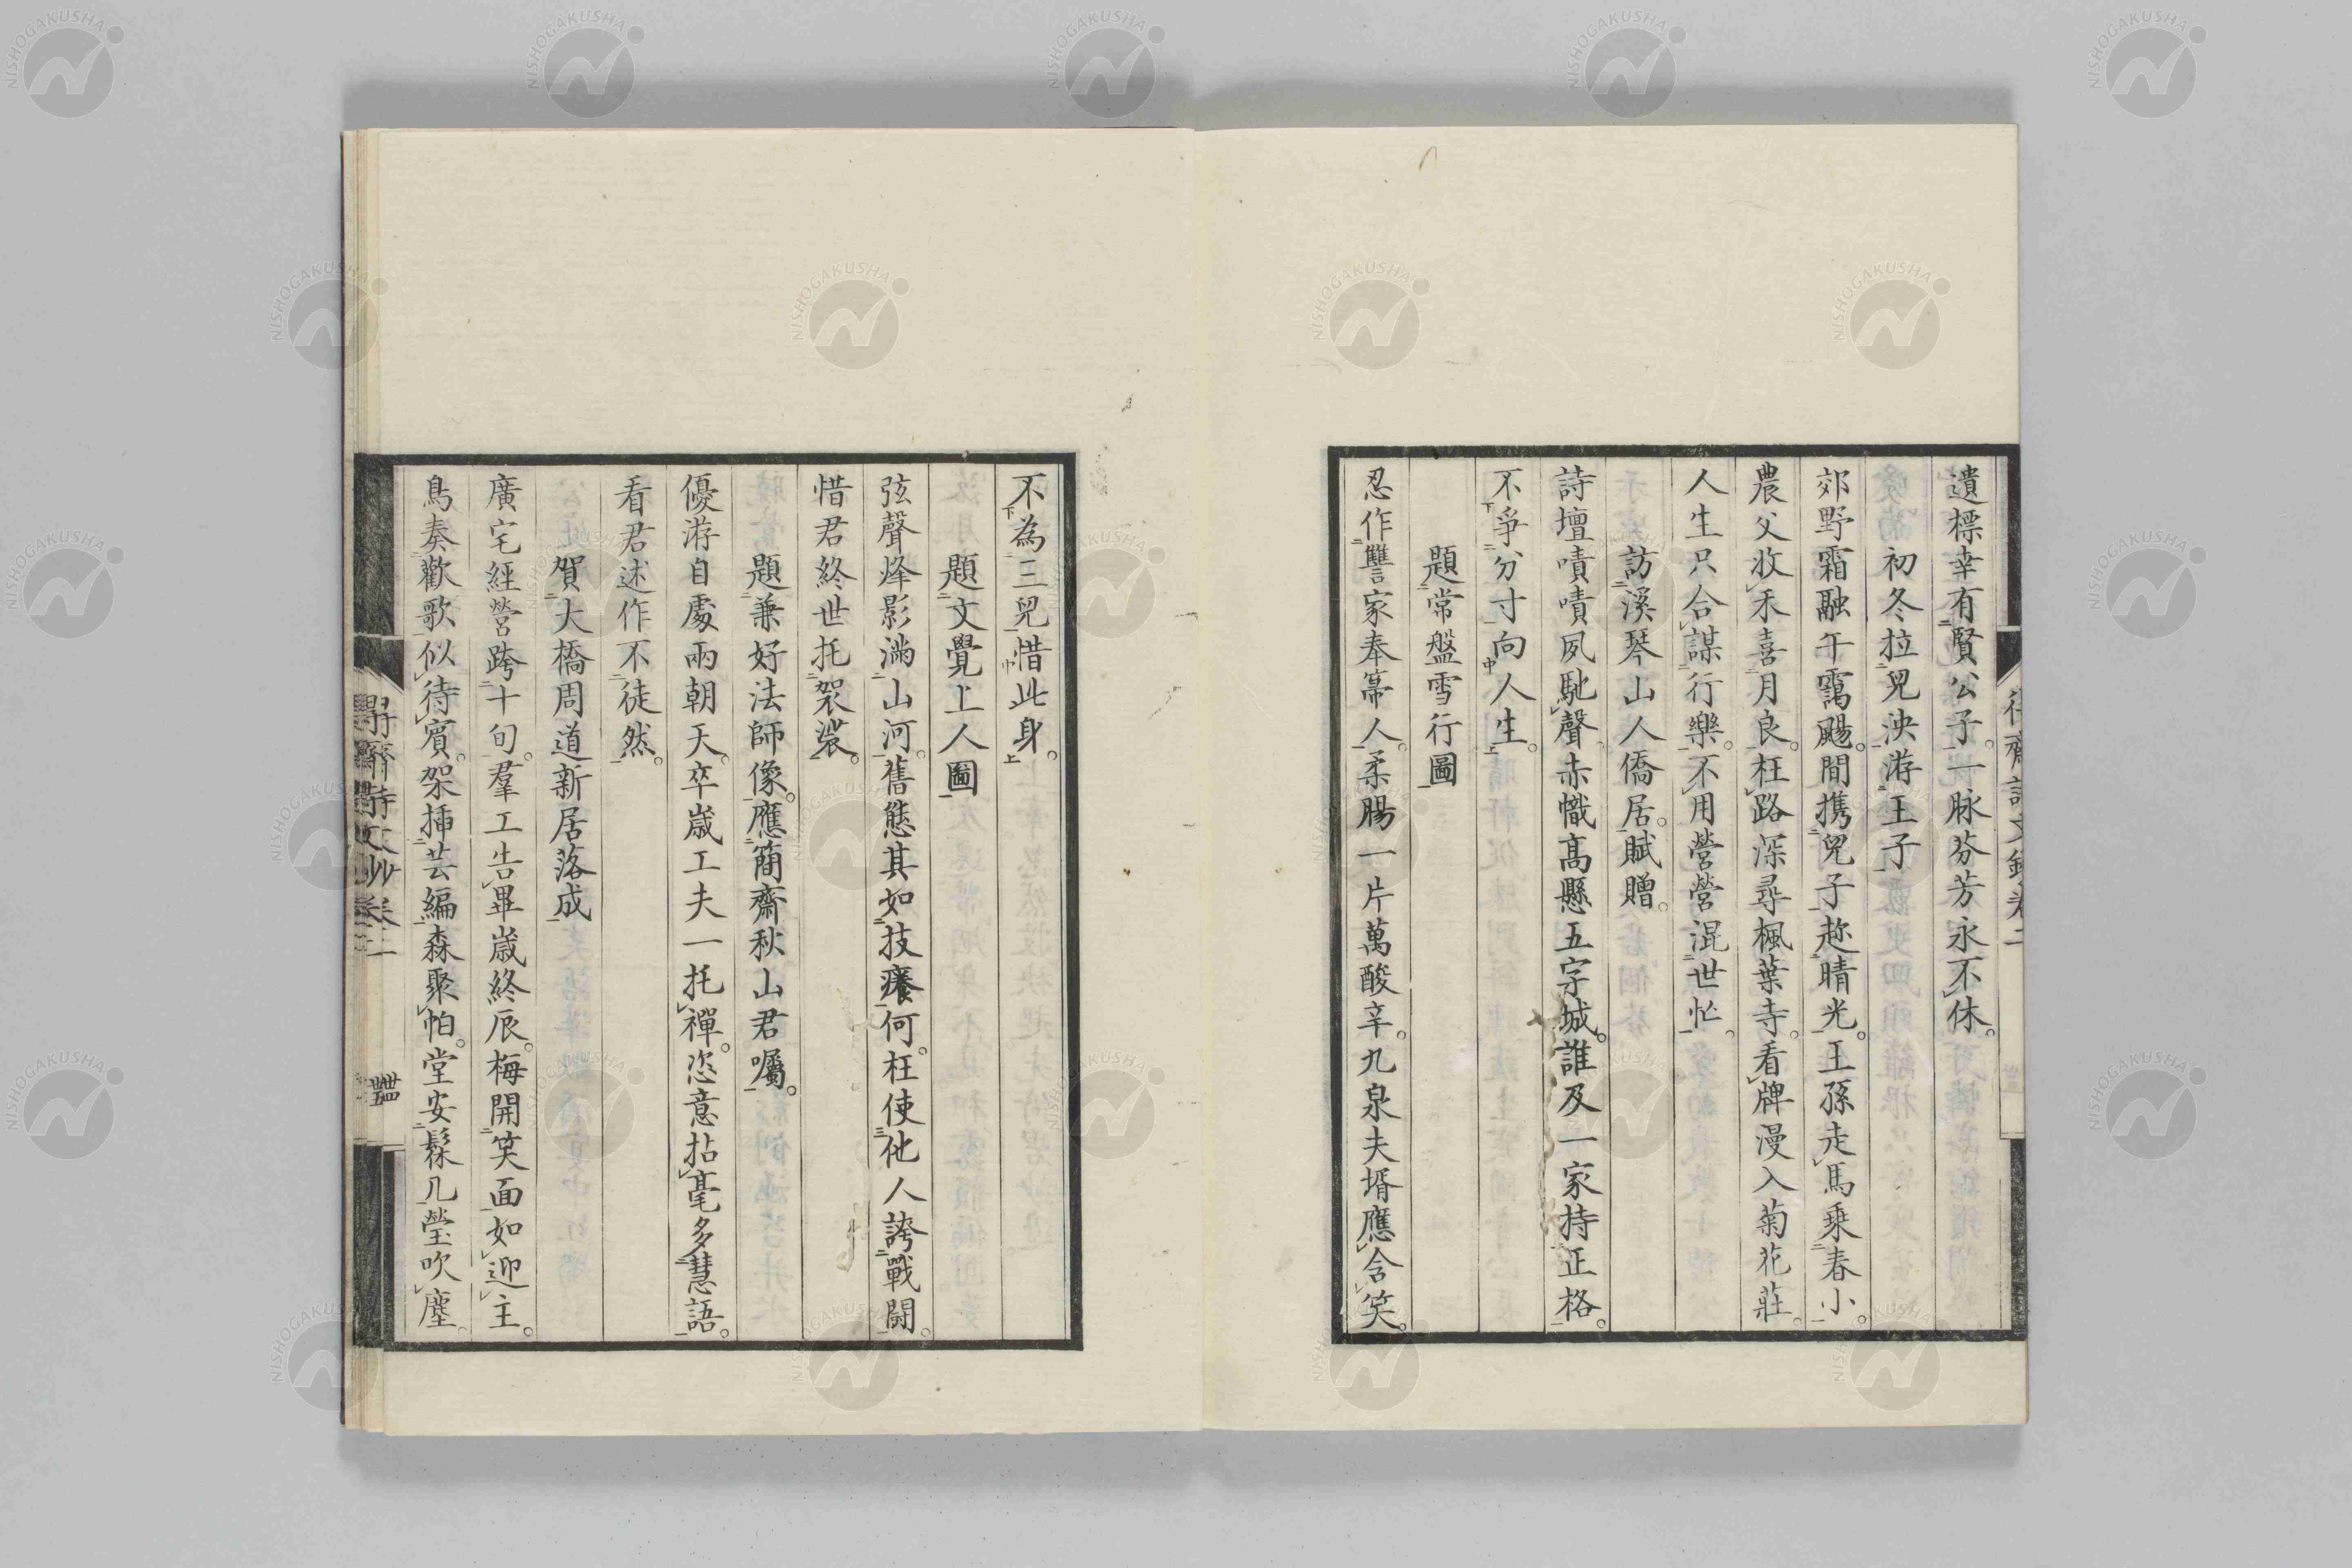 遺標幸有賢公子一脉芬芳永不休
初冬拉兒泱游王子
郊野霜融午靄颺閒携兒子趂晴光王孫走馬乗春小
農父收禾喜月良枉路深尋楓葉寺看牌漫入菊花莊
人生只合謀行樂不用營營混世忙
訪溪琴山人僑居賦贈
詩壇嘖嘖夙馳聲赤幟髙懸五字城誰及一家持正格
不爭分寸向人生
題常盤雪行圖
忍作讐家奉箒人柔腸一片萬酸辛九泉夫壻應含笑
不為三兒惜此身
題文覺上人圖
弦聲烽影滿山河舊態其如技癢何枉使他人誇戰鬪
惜君終世托袈裟
題兼好法師像應簡齋秋山君囑
優游自處兩朝天卒歳工夫一托禪恣意拈毫多慧語
看君述作不徒然
賀大橋周道新居落成
廣宅經營跨十旬羣工告畢歳終辰梅開笑面如迎主
鳥奏歡歌似待賓架揷芸編森聚帕堂安髹几瑩吹塵
NISHOGAKUSHA